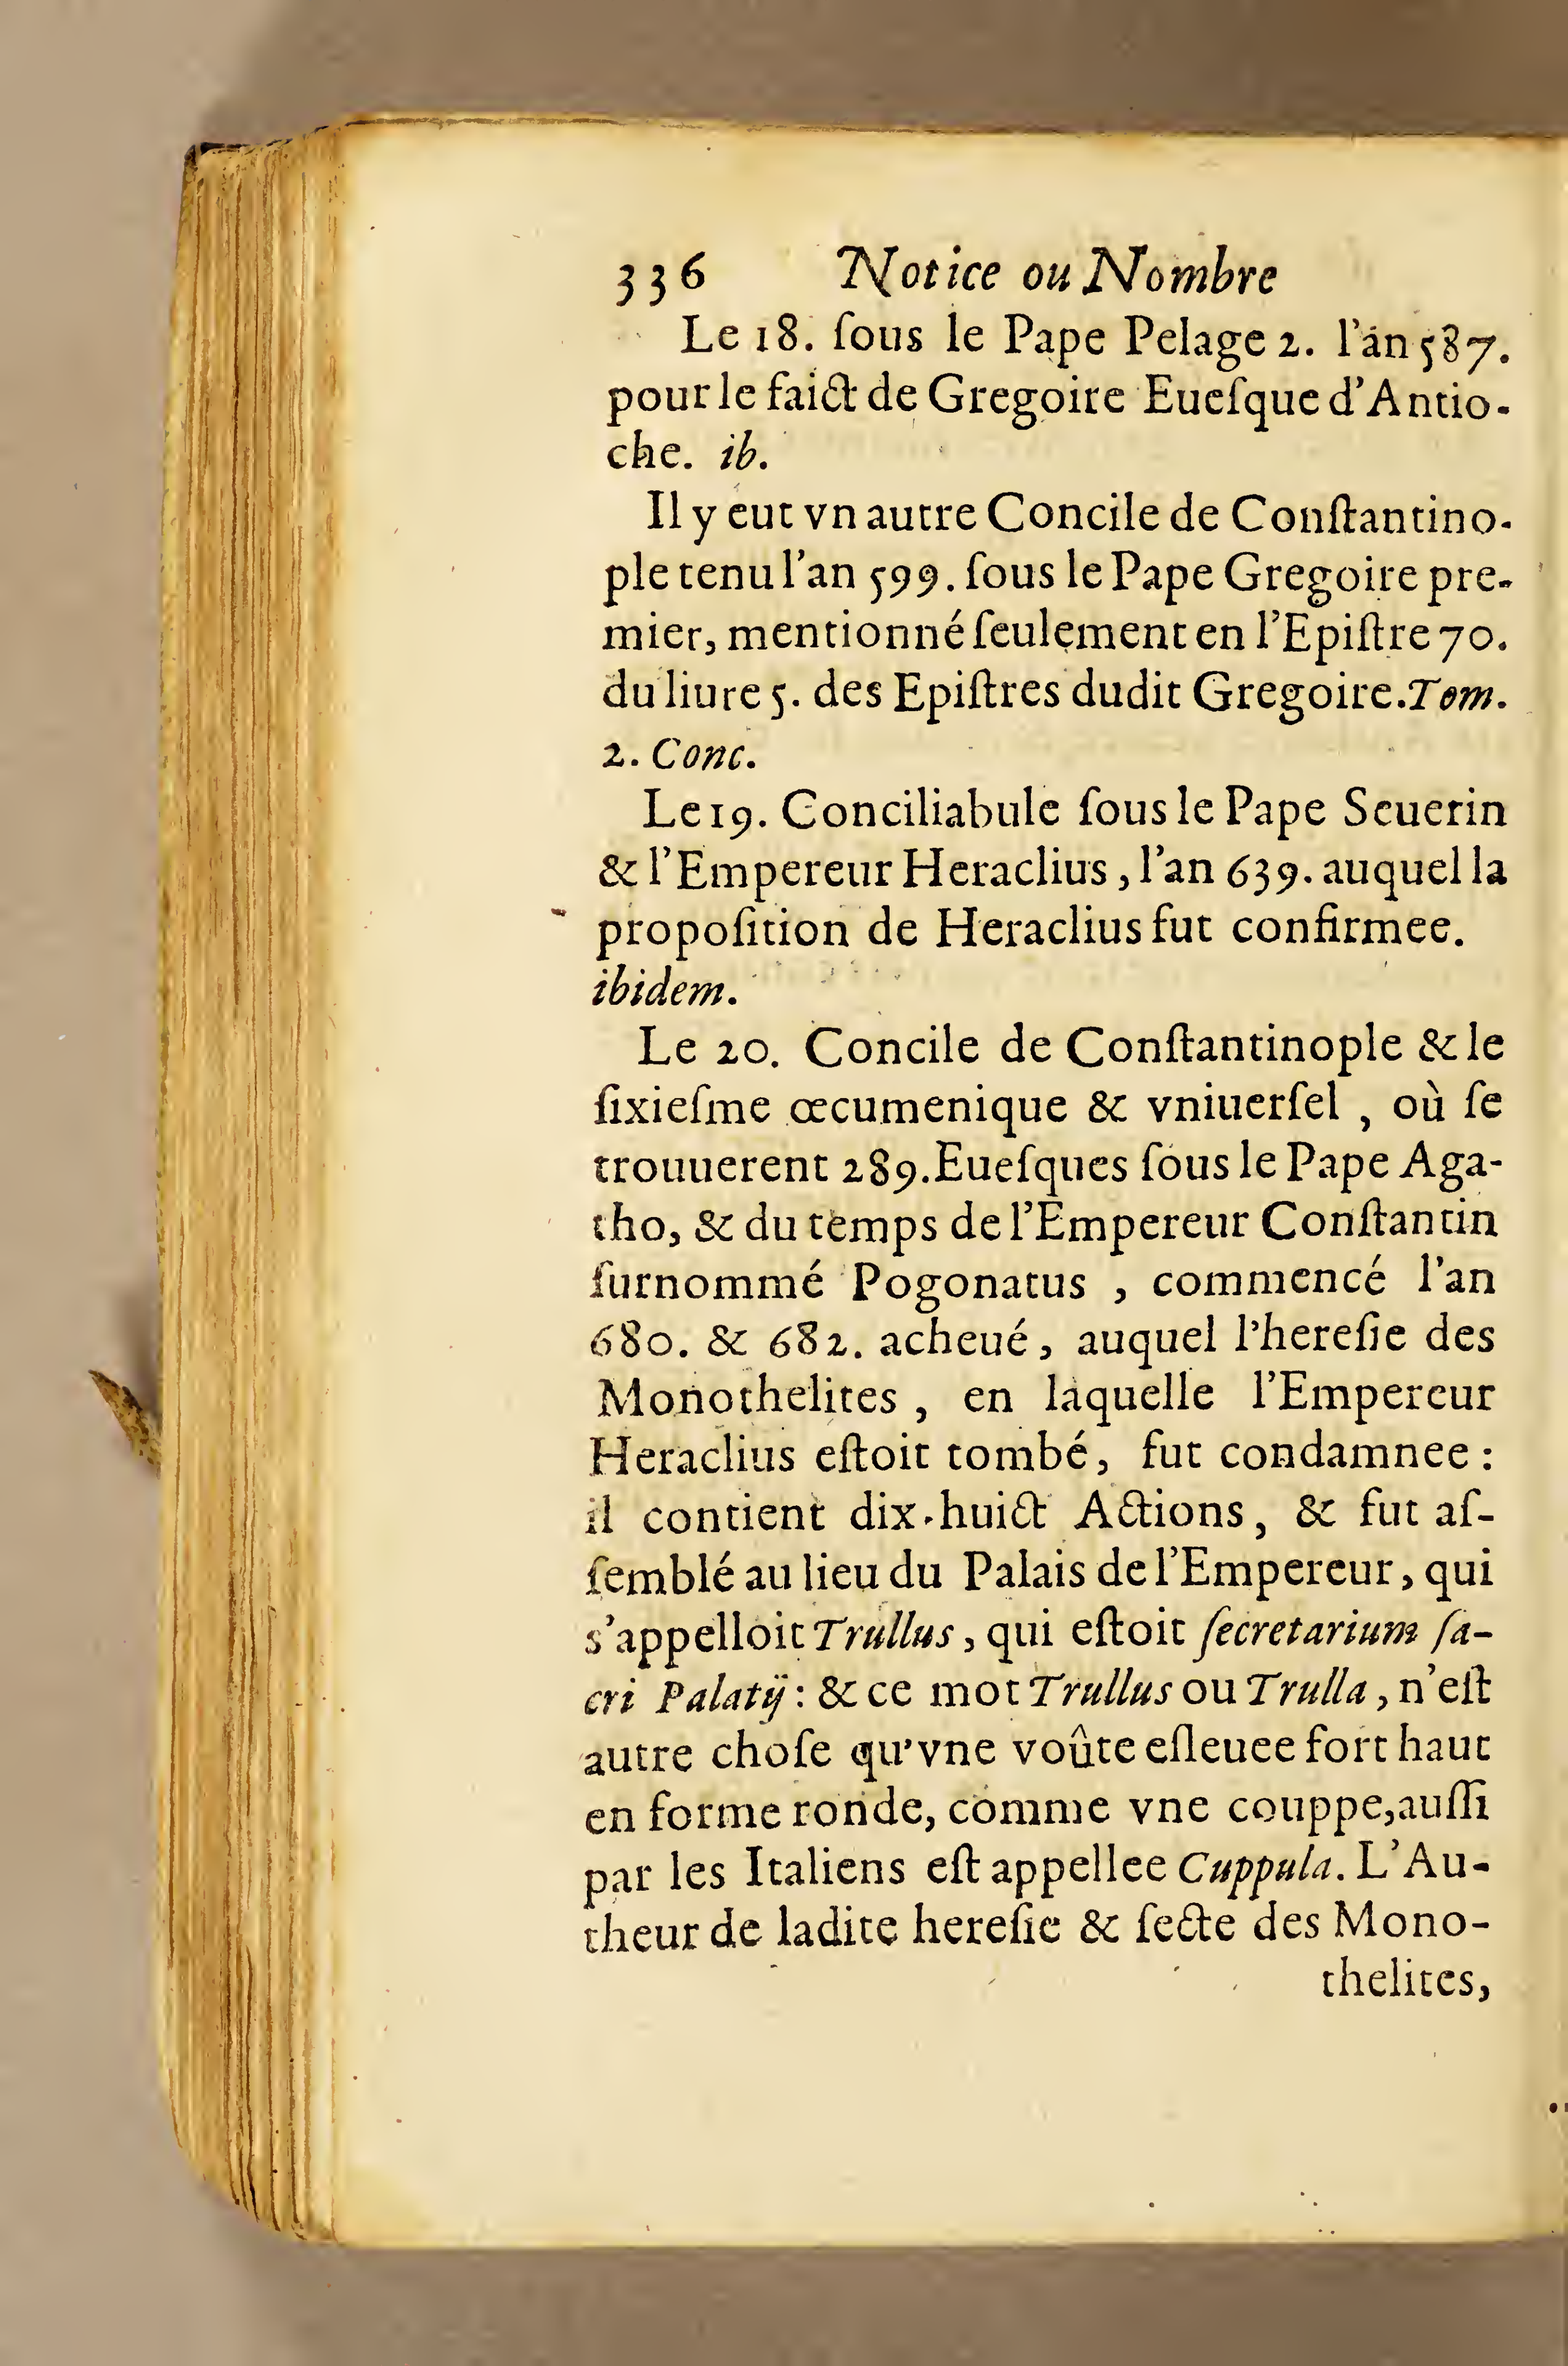 336 Notice ou Nombre
Le 18. ſous le Pape Pelage 2. l'an 587.
pour le faict de Gregoire Eueſque d'Antio-
che. ib.
Il y eut vn autre Concile de Conſtantino-
ple tenu l'an 599. ſous le Pape Gregoire pre-
mier, mentionné ſeulement en l'Epiſtre 70.
du liure 5. des Epiſtres dudit Gregoire. Tom.
2. Conc.
Le 19. Conciliabule ſous le Pape Seuerin
& l'Empereur Heraclius, l'an 639. auquel la
propoſition de Heraclius fut confirmee.
ibidem.
Le 20. Concile de Conſtantinople & le
ſixieſme œcumenique & vniuerſel, où ſe
trouuerent 289. Eueſques ſous le Pape Aga-
tho, & du temps de l'Empereur Conſtantin
ſurnommé Pogonatus, commencé l'an
680. & 682. acheué, auquel l'hereſie des
Monothelites, en laquelle l'Empereur
Heraclius eſtoit tombé, fut condamnee :
il contient dix-huict Actions, & fut aſ-
ſemblé au lieu du Palais de l'Empereur, qui
s'appelloit Trullus, qui eſtoit ſecretarium ſa-
cri Palatij : & ce mot Trullus ou Trulla, n'eſt
autre choſe qu'vne voûte eſleuee fort haut
en forme ronde, comme vne couppe, auſſi
par les Italiens eſt appellee Cuppula. L'Au-
theur de ladite hereſie & ſecte des Mono-
thelites,